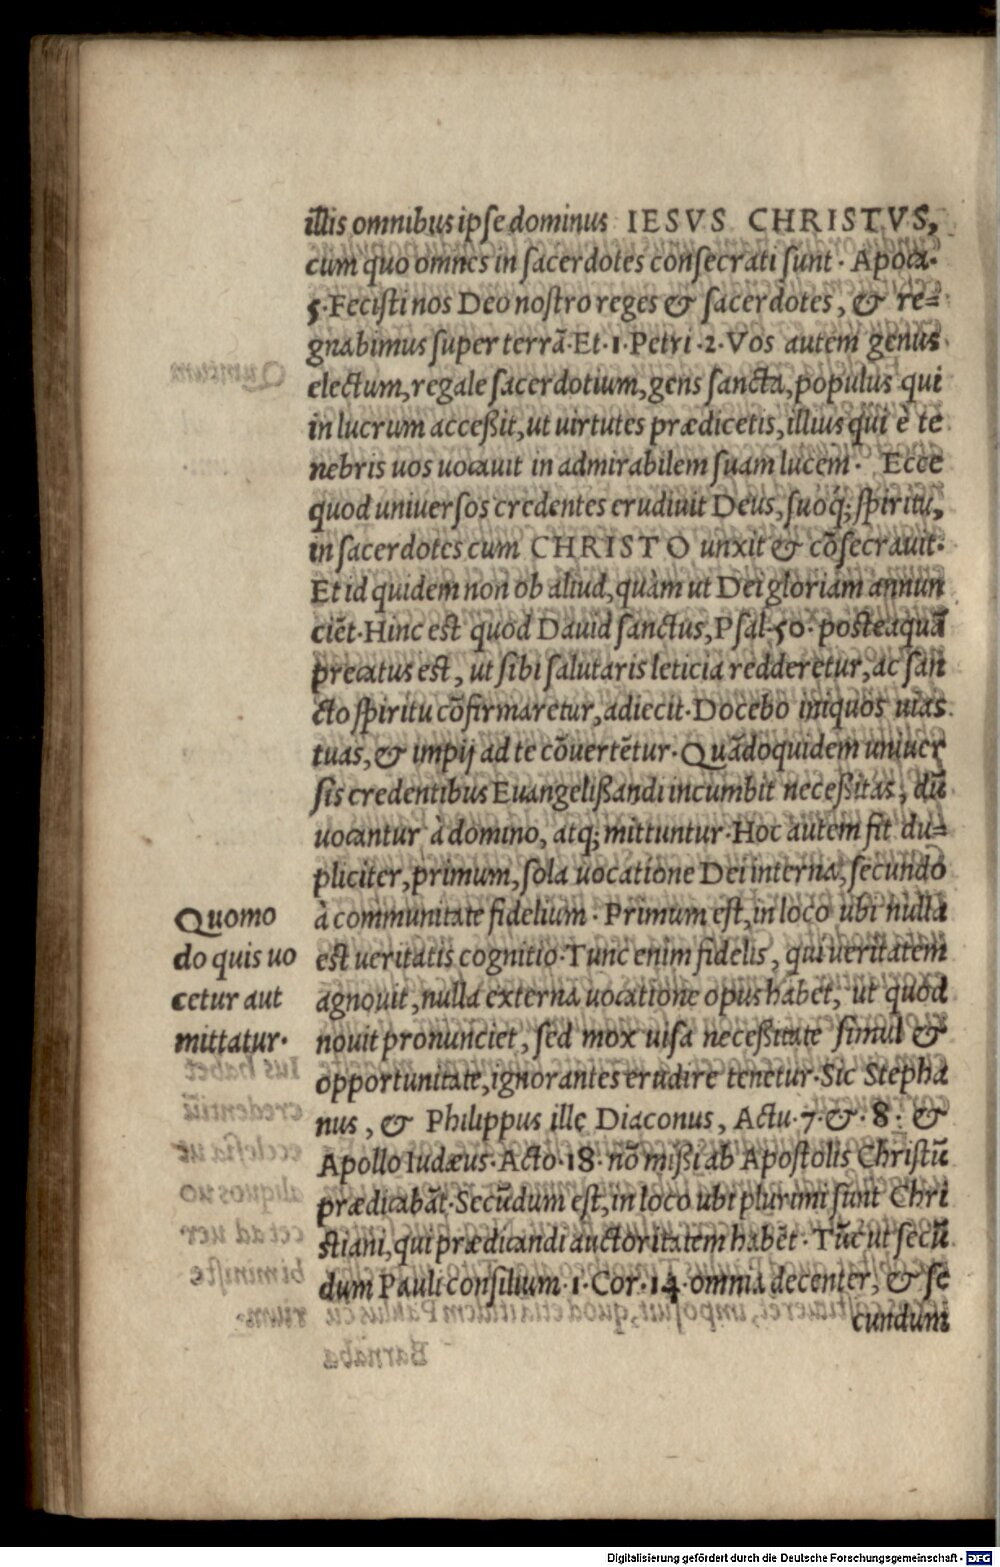 illis omnibus ipſe dominus IESVS CHRISTVS,
cum quo omnes in ſacerdotes conſecrati ſunt. Apoca.
5. Feciſti nos Deo noſtro reges & ſacerdotes, & re=
gnabimus ſuper terrā. Et. 1. Petri. 2. Vos autem genus
electum, regale ſacerdotium, gens ſancta, populus qui
in lucrum acceßit, ut uirtutes prædicetis, illius qui è te
nebris uos uocauit in admirabilem ſuam lucem. Ecce
quod uniuerſos credentes erudiuit Deus, ſuoq; ſpiritu,
in ſacerdotes cum CHRISTO unxit & cōſecrauit.
Et id quidem non ob aliud, quàm ut Dei gloriam annun
ciēt. Hinc eſt quod Dauid ſanctus, Pſal. 50. posteaquā
precatus eſt, ut ſibi ſalutaris leticia redderetur, ac ſan
cto ſpiritu cōfirmaretur, adiecit. Docebo iniquos uias
tuas, & impij ad te cōuertētur. Quādoquidem uniuer
ſis credentibus Euangelißandi incumbit neceßitas, dū
uocantur à domino, atq; mittuntur. Hoc autem fit du=
pliciter, primum, ſola uocatione Dei interna, ſecundo
à communitate fidelium. Primum eſt, in loco ubi nulla
est ueritatis cognitio. Tunc enim fidelis, qui ueritatem
agnouit, nulla externa uocatione opus habet, ut quod
nouit pronunciet, ſed mox uiſa neceßitate ſimul &
opportunitate, ignorantes erudire tenetur. Sic Stepha
nus, & Philippus ille Diaconus, Actu. 7. &. 8. &
Apollo Iudæus. Acto. 18. nō mißi ab Apoſtolis Chriſtū
prædicabāt. Secūdum eſt, in loco ubi plurimi ſunt Chri
ſtiani, qui prædicandi auctoritatem habēt. Tūc ut ſecū
dum Pauli conſilium. 1. Cor. 14. omnia decenter, & ſe
cundum
Quomo
do quis uo
cetur aut
mittatur.
Digitalisierung gefördert durch die Deutsche Forschungsgemeinschaft - DFG